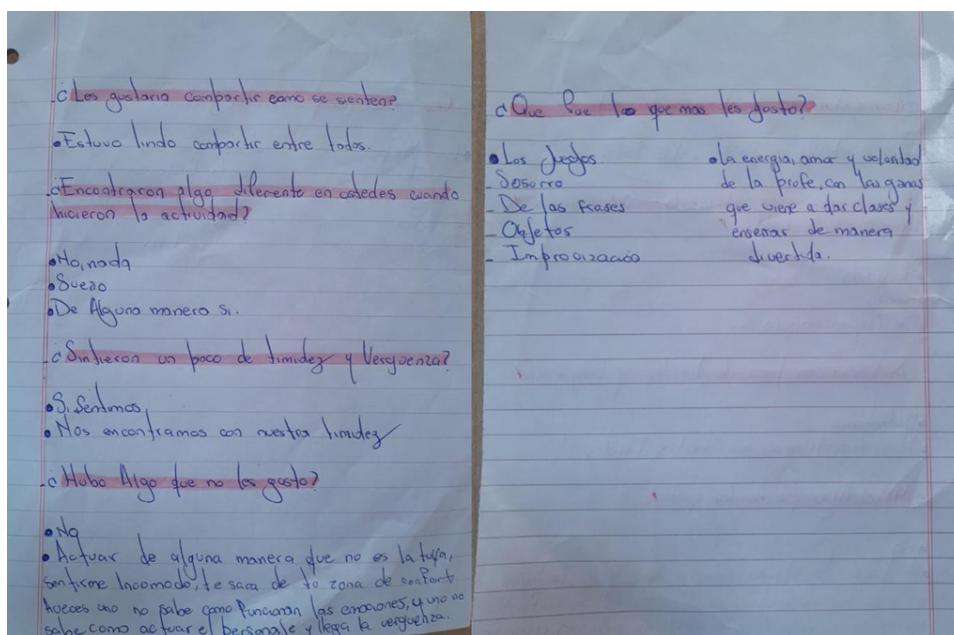 ¿Les gustaria compartir como se sienten?
•Estuvo lindo compartir entre todos.
¿Encontraron algo diferente en ustedes cuando
hicieron la actividad?
•No, nada
•Sueño
•De Alguna manera si.
¿Sintieron un poco de timidez y Verguenza?
•Si Sentimos,
•Nos encontramos con nuestra timidez
¿Hubo Algo que no les gusto?
•No
•Actuar de alguna manera que no es la tuya,
sentirme Incomodo, te saca de tu zona de confort
Aveces uno no sabe como funcionan las emociones, y uno no
sabe como actuar el personaje y llega la verguenza.
¿Que Fue lo que mas les gusto?
•Los Juegos
- Sosorro
- De las frases
- Objetos
- Improvización
•La energia, amor y voluntad
de la profe, con las ganas
que viene a dar clases y
enseñar de manera
divertida.